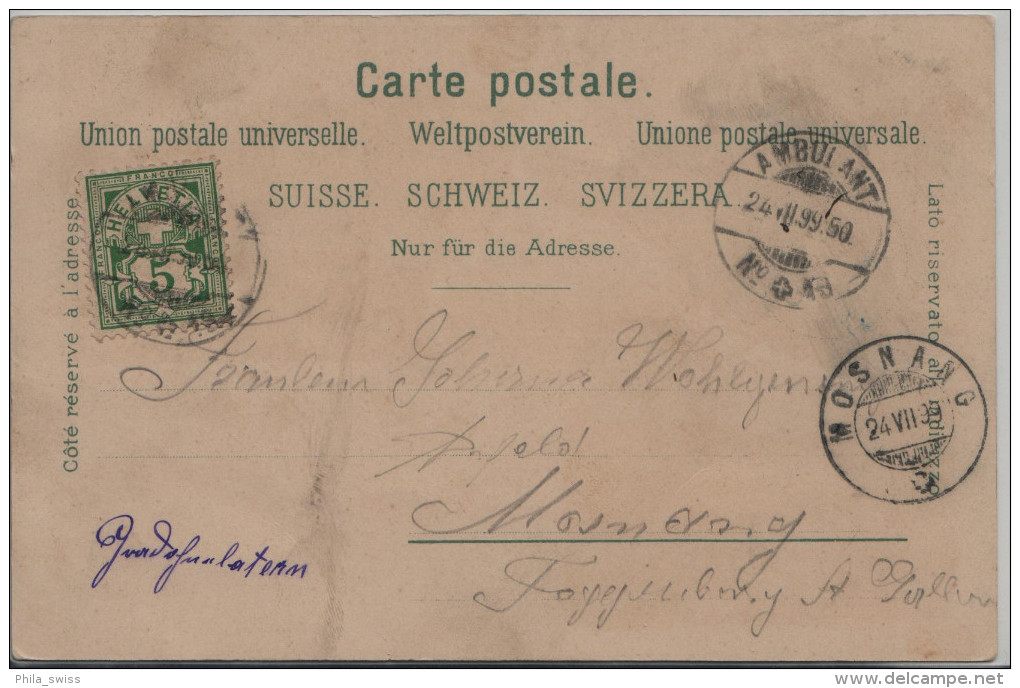 Carte postale.
Union postale universelle. Weltpostverein. Unione postale universale.
SUISSE. SCHWEIZ. SVIZZERA.
Nur für die Adresse.
Côté réservé à l'adresse.
Lato riservato all' indirizzo
FRANCO
HELVETIA
5
AMBULANT
24.VII.99.50.
No
MOSNANG
24 VII 99
Fräulein
Mosnang
Toggenburg St Gallen
Phila_swiss